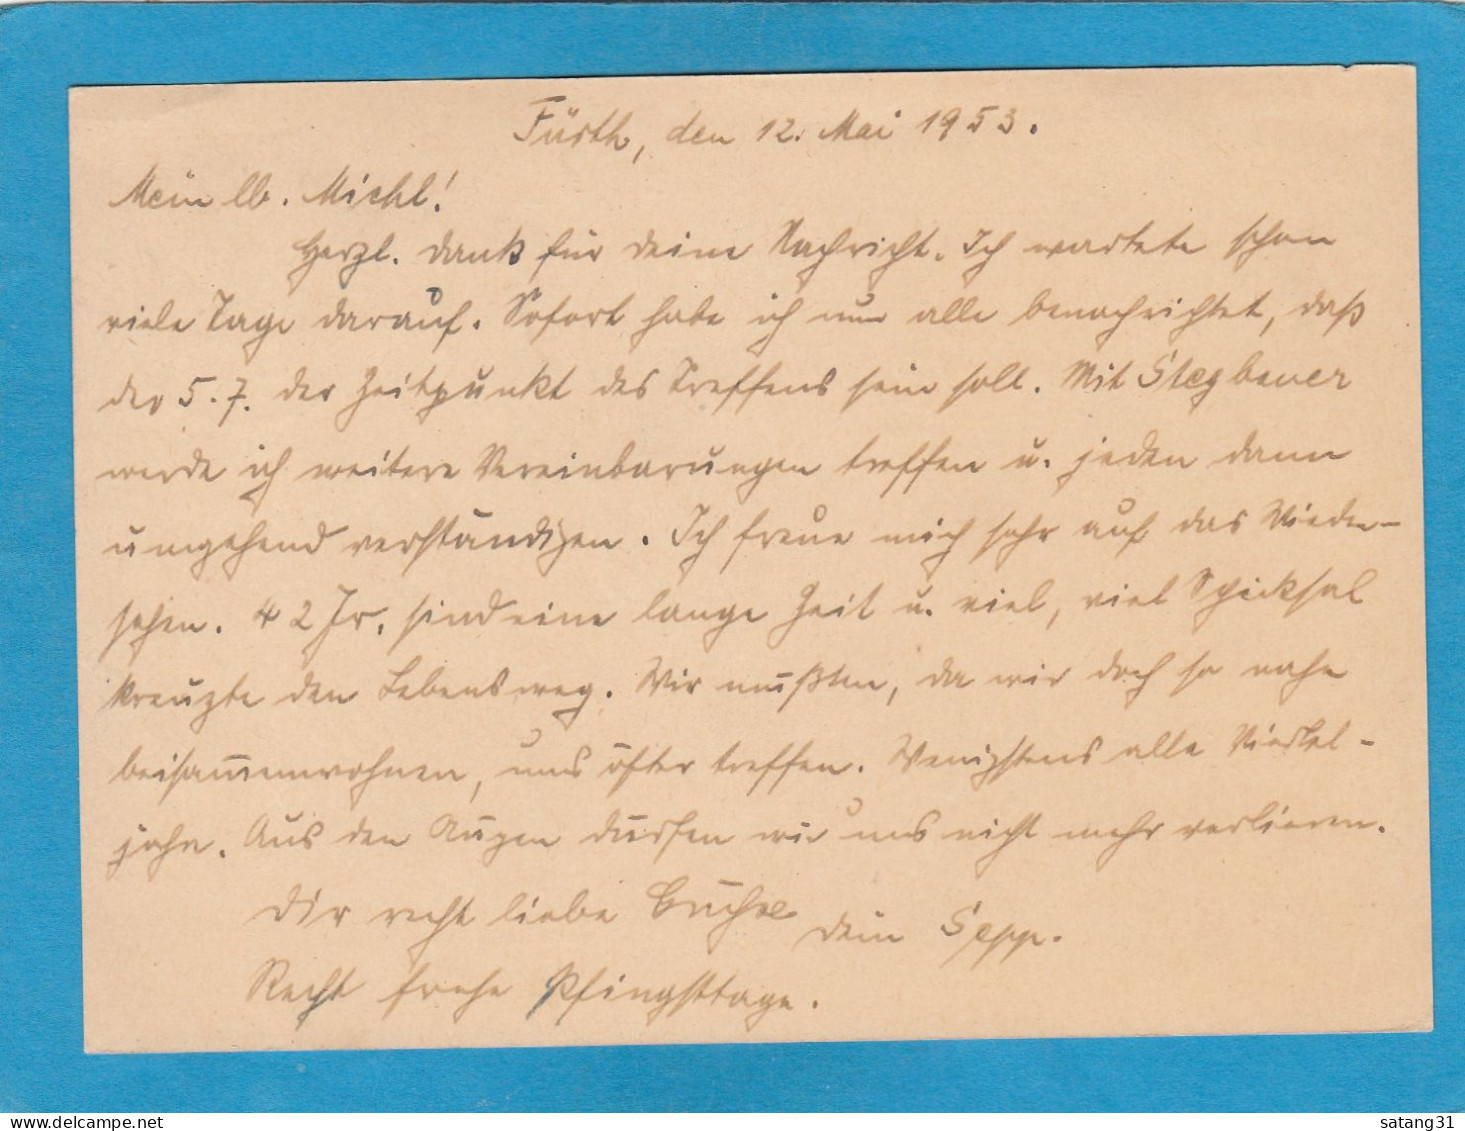 Fürth, den 12. Mai 1953.
Mein lb. Michl!
Herzl. Dank für deine Nachricht. Ich wartete schon
viele Tage darauf. Sofort habe ich nun alle benachrichtet, daß
der 5.7. der Zeitpunkt des Treffens sein soll. Mit Stegbauer
werde ich weitere Vereinbarungen treffen u. jeden dann
umgehend verständigen. Ich freue mich sehr auf das Wieder-
sehen. 42 Jr. sind eine lange Zeit u. viel, viel Schicksal
kreuzte den Lebensweg. Wir mußten, da wir doch so nahe
beisam̅enwohnen, uns öfter treffen. Wenigstens alle Viertel-
jahr. Aus den Augen dürfen wir uns nicht mehr verlieren.
Dir recht liebe
dein Sepp.
Recht frohe Pfingsttage.
satang31